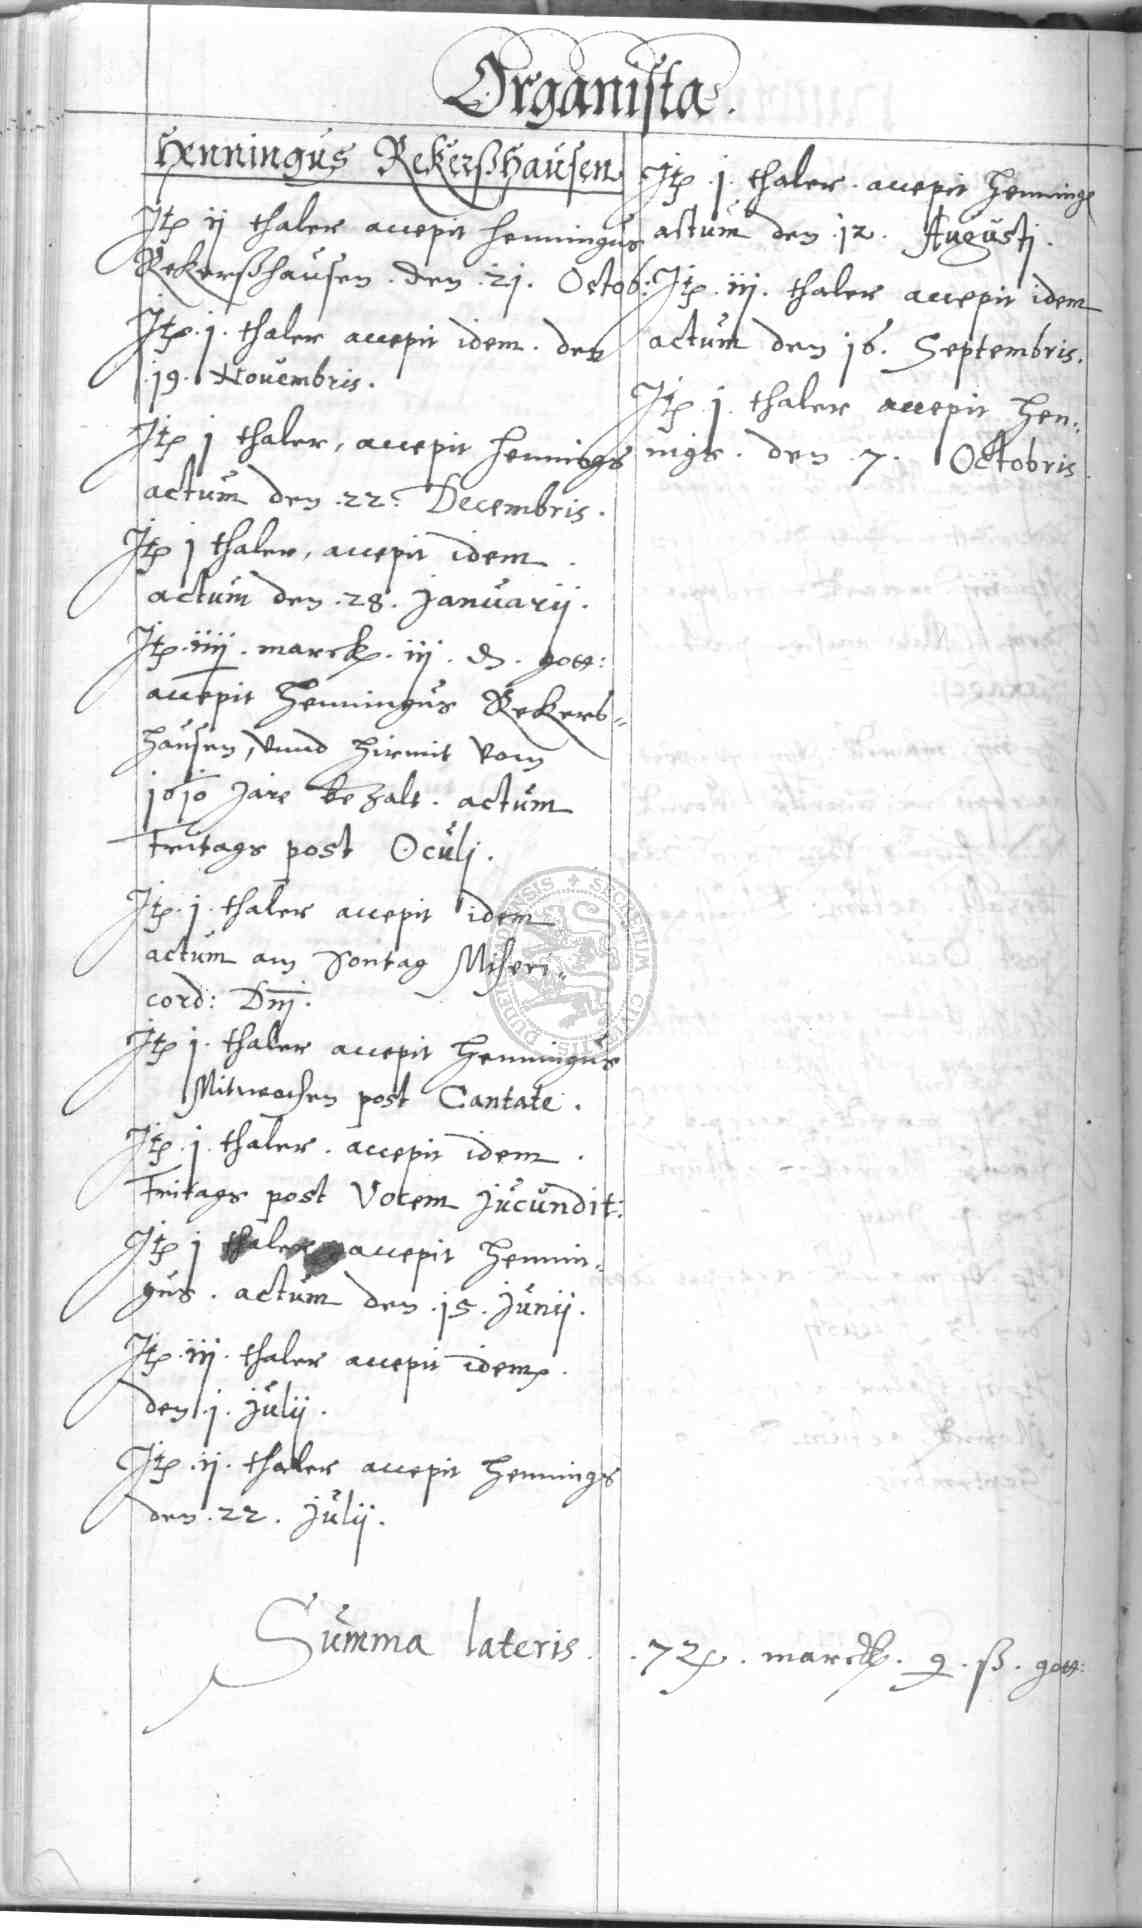 Organista.
Henningus Rekerßhausen
Itp ij thaler accepit Henningus
Rekerßhausen. den .21. Octob:
Itp .j. thaler accepit idem. den
.19. Nouembris.
Itp j thaler, accepit Hennings
actum den .22. Decembris.
Itp j thaler, accepit idem.
actum den .28. Januarij.
Itp .iiij. marck. iij. gott:
accepit Henningus Rekers-
hausen, vnnd hirmit vom
1610 Jare bezalt. actum
Fritags post Oculj.
Itp .j. thaler accepit idem
actum am Sontag Miseri-
cord: Dnj.
Itp j. thaler accepit Henningus
Mitwochen post Cantate.
Itp .j. thaler. accepit idem.
Fritags post Vocem Jucundit:
Itp j thaler accepit Hennin-
gus. actum den .15. Junij.
Itp .iij. thaler accepit idem.
den .j. Julij.
Itp .ij. thaler accepit Hennings
den .22. Julij.
Itp .j. thaler. accepit Henning
actum den .12. Augustj.
Itp .iij. thaler accepit idem
actum den 16. Septembris.
Itp .j. thaler accepit Hen-
nigs. den .7. Octobris
Summa lateris. .72. marck. 9. ß. gott:
SECRETUM CIVITATIS DUDERSTADENSIS